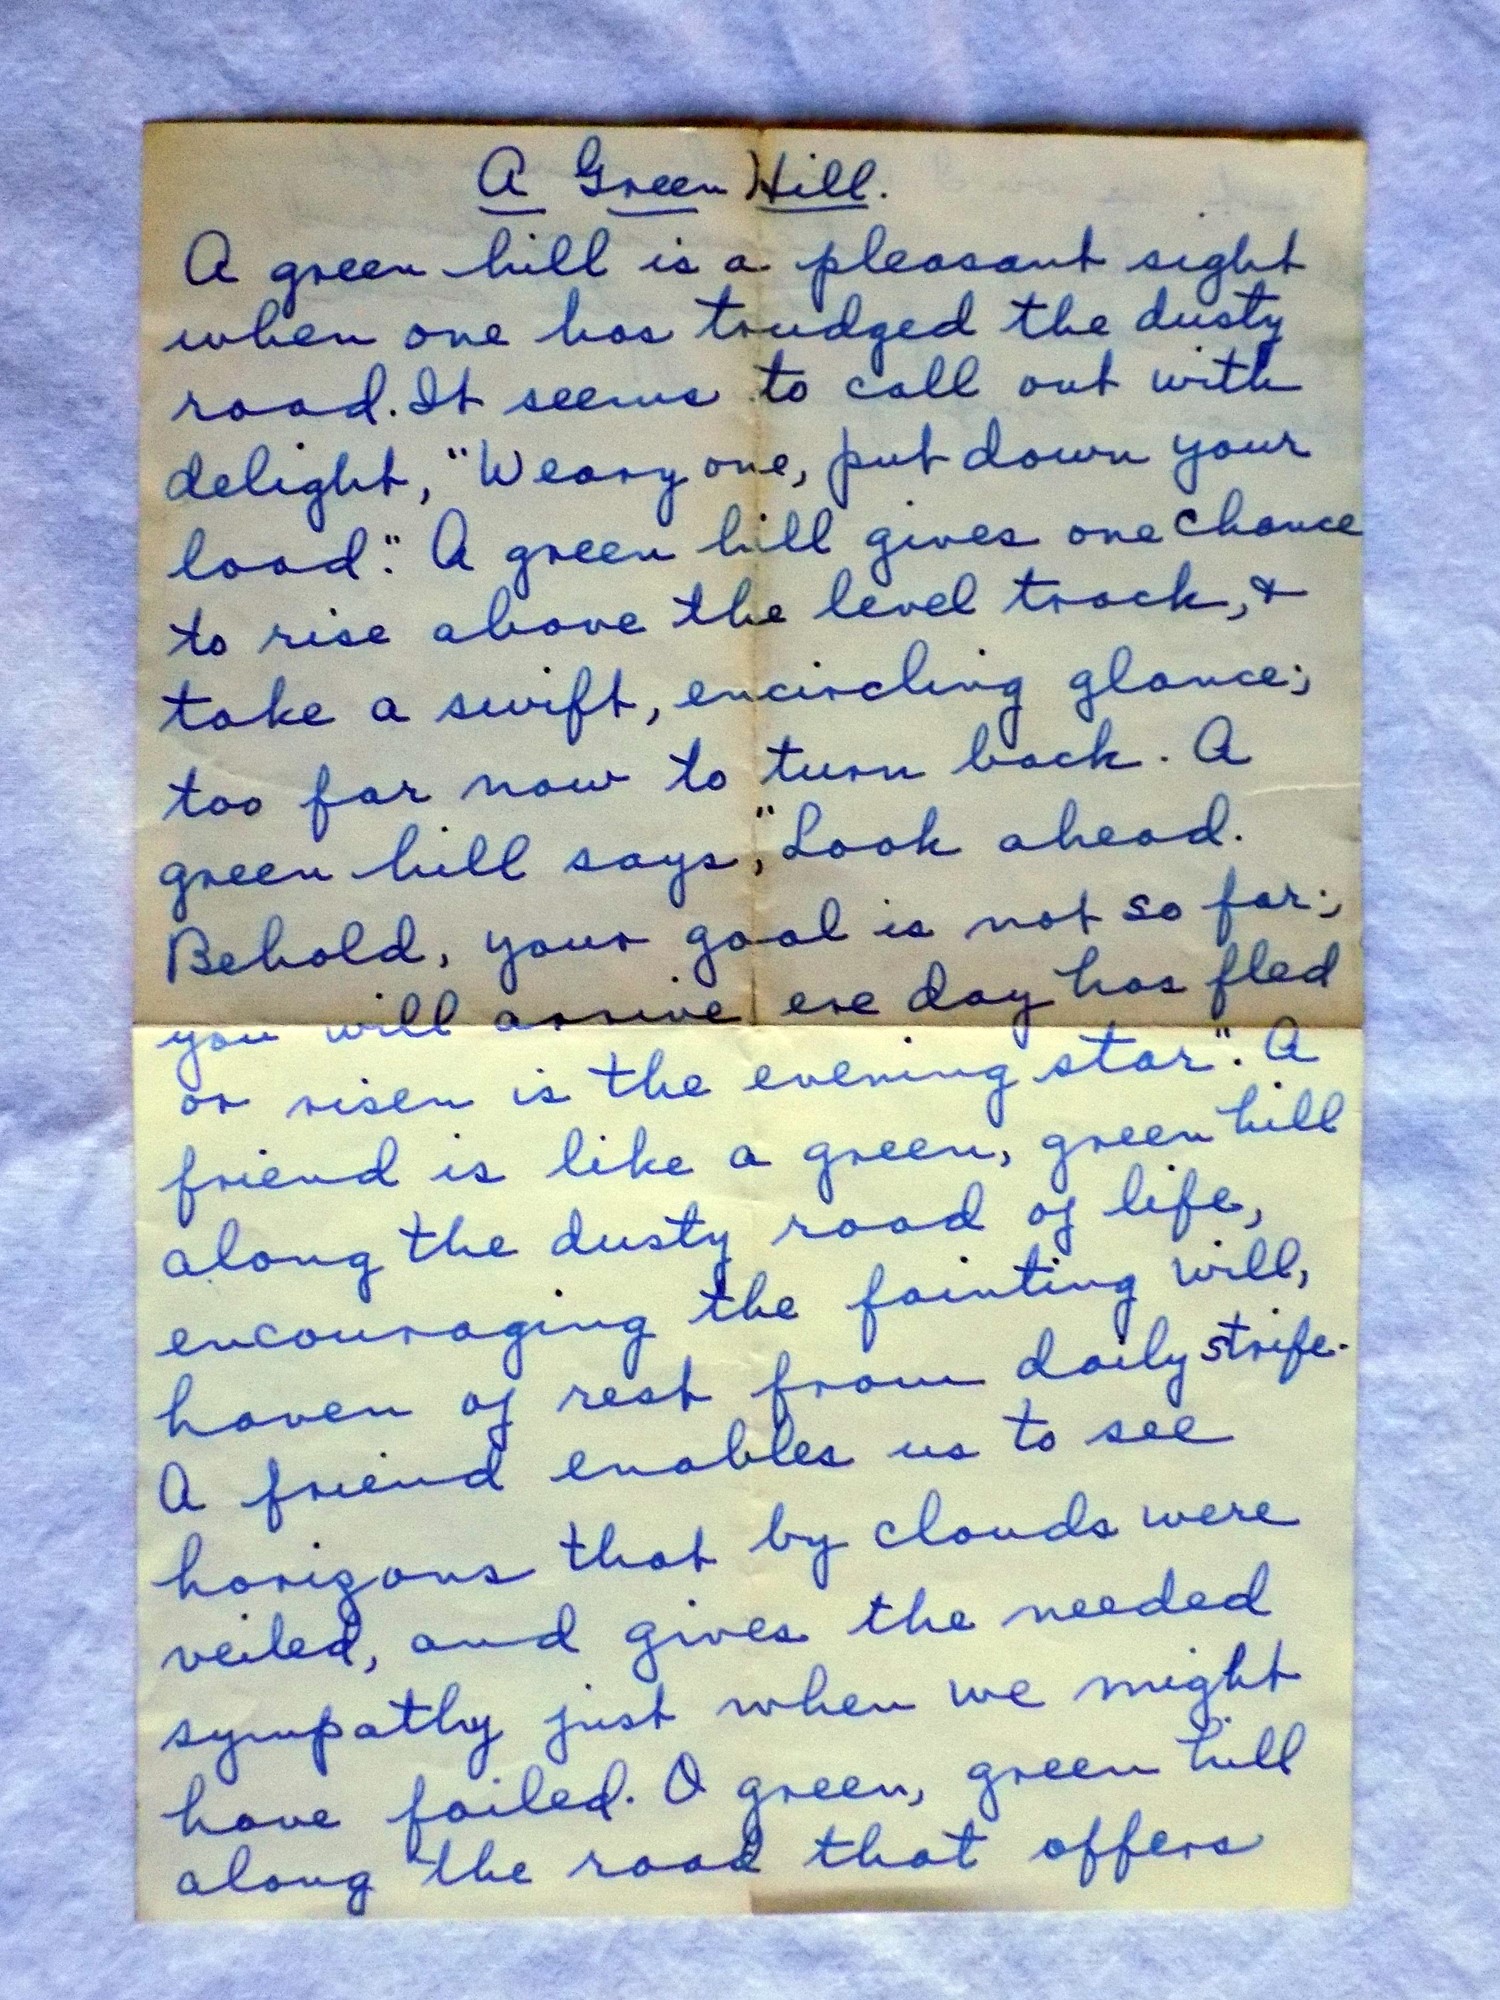 A Green Hill.
A green hill is a pleasant sight
when one has trudged the dusty
road. It seems to call out with
delight, "Weary one, put down your
load". A green hill gives one chance
to rise above the level track, &
take a swift, encircling glance;
too far now to turn back. A
green hill says, "Look ahead.
Behold, your goal is not so far;
you will arrive ere day has fled
or risen is the evening star". A
friend is like a green, green hill
along the dusty road of life,
encouraging the fainting will,
haven of rest from daily strife.
A friend enables us to see
horizons that by clouds were
veiled, and gives the needed
sympathy just when we might
have failed. O green, green hill
along the road that offers